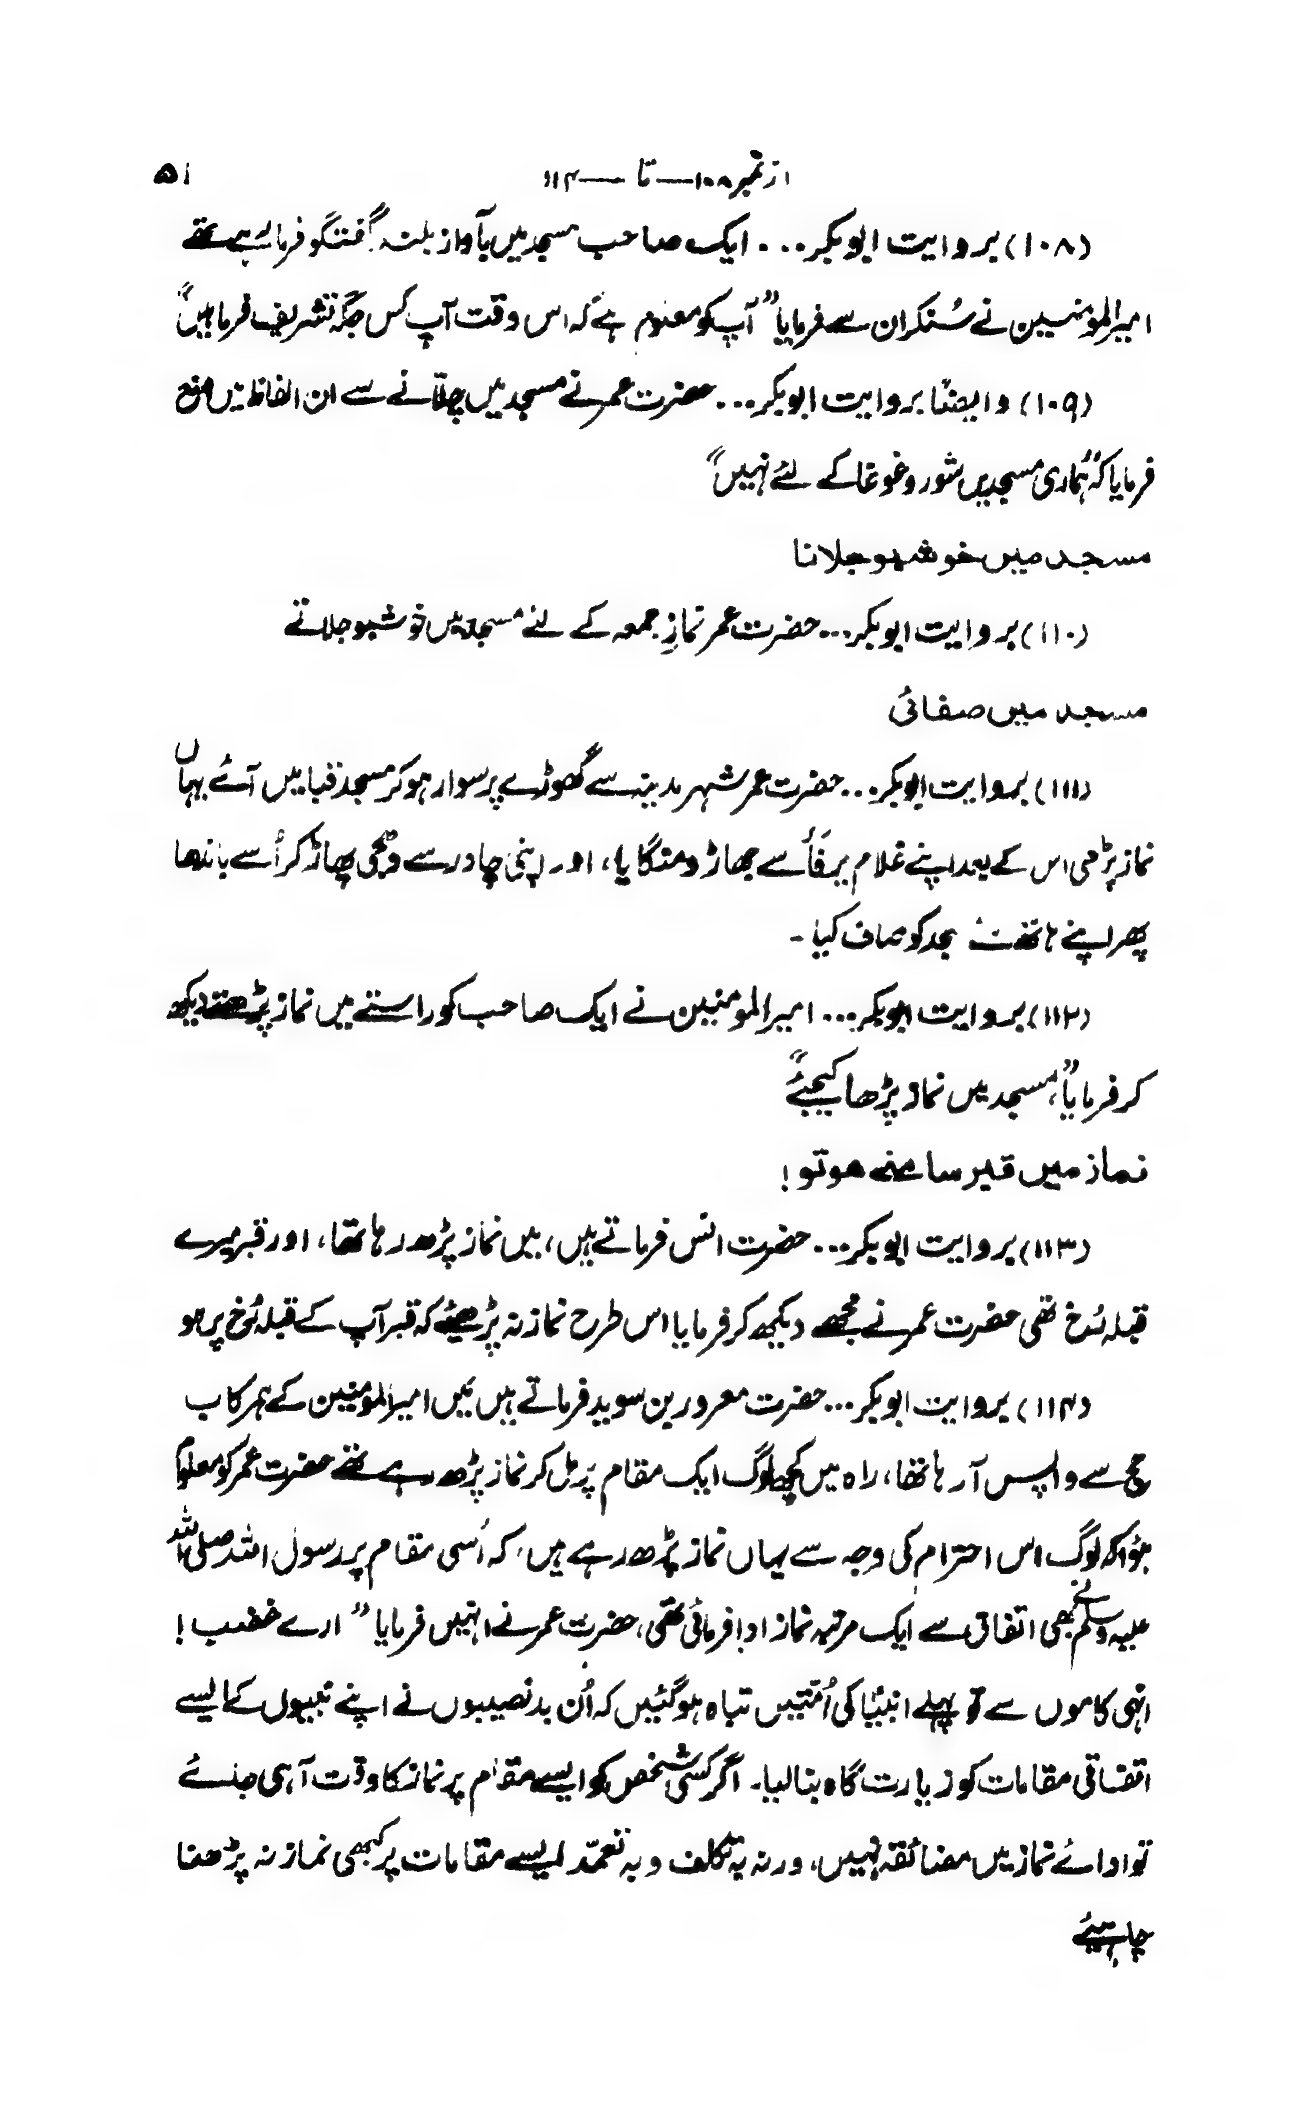 از نمبر ۱۰۸ — تا — ۱۱۴ ۵۱
(۱۰۸) بروایت ابوبکر... ایک صاحب مسجد میں بآواز بلند گفتگو فرما رہے تھے
امیرالمومنین نے سُنکر ان سے فرمایا ”آپ کو معلوم ہے کہ اس وقت آپ کس جگہ تشریف فرما ہیں“
(۱۰۹) وایضاً بروایت ابوبکر... حضرت عمر نے مسجد میں چلّانے سے ان الفاظ میں منع
فرمایا کہ ”ہماری مسجدیں شور و غوغا کے لئے نہیں“
مسجد میں خوشبو جلانا
(۱۱۰) بروایت ابوبکر... حضرت عمر نمازِ جمعہ کے لئے مسجد میں خوشبو جلاتے
مسجد میں صفائی
(۱۱۱) بروایت ابوبکر... حضرت عمر شہر مدینہ سے گھوڑے پر سوار ہو کر مسجد قبا میں آئے یہاں
نماز پڑھی اس کے بعد اپنے غلام یرفَأ سے جھاڑو منگایا، اور اپنی چادر سے دھجی پھاڑ کر اُسے باندھا
پھر اپنے ہاتھ سے مسجد کو صاف کیا -
(۱۱۲) بروایت ابوبکر... امیرالمومنین نے ایک صاحب کو راستے میں نماز پڑھتے دیکھ
کر فرمایا ”مسجد میں نماز پڑھا کیجئے“
نماز میں قبر سامنے ہو تو!
(۱۱۳) بروایت ابوبکر... حضرت انس فرماتے ہیں، میں نماز پڑھ رہا تھا، اور قبر میرے
قبلہ رُخ تھی حضرت عمر نے مجھے دیکھ کر فرمایا اس طرح نماز نہ پڑھیئے کہ قبر آپ کے قبلہ رُخ پر ہو
(۱۱۴) بروایت ابوبکر... حضرت معرور بن سوید فرماتے ہیں میں امیرالمومنین کے ہمرکاب
حج سے واپس آ رہا تھا، راہ میں کچھ لوگ ایک مقام پر مل کر نماز پڑھ رہے تھے حضرت عمر کو معلوم
ہؤا کہ لوگ اس احترام کی وجہ سے یہاں نماز پڑھ رہے ہیں، کہ اُسی مقام پر رسول اللہ صلی اللہ
علیہ وسلم نے بھی اتفاق سے ایک مرتبہ نماز ادا فرمائی تھی، حضرت عمر نے انہیں فرمایا ”ارے غضب!
انہی کاموں سے تو پہلے انبیا کی اُمتیں تباہ ہو گئیں کہ اُن بدنصیبوں نے اپنے نبیوں کے ایسے
اتفاقی مقامات کو زیارت گاہ بنا لیا۔ اگر کسی شخص کو ایسے مقام پر نماز کا وقت آ ہی جائے
تو ادائے نماز میں مضائقہ نہیں، ورنہ بہ تکلف و بہ تعمّد ایسے مقامات پر کبھی نماز نہ پڑھنا
چاہیئے